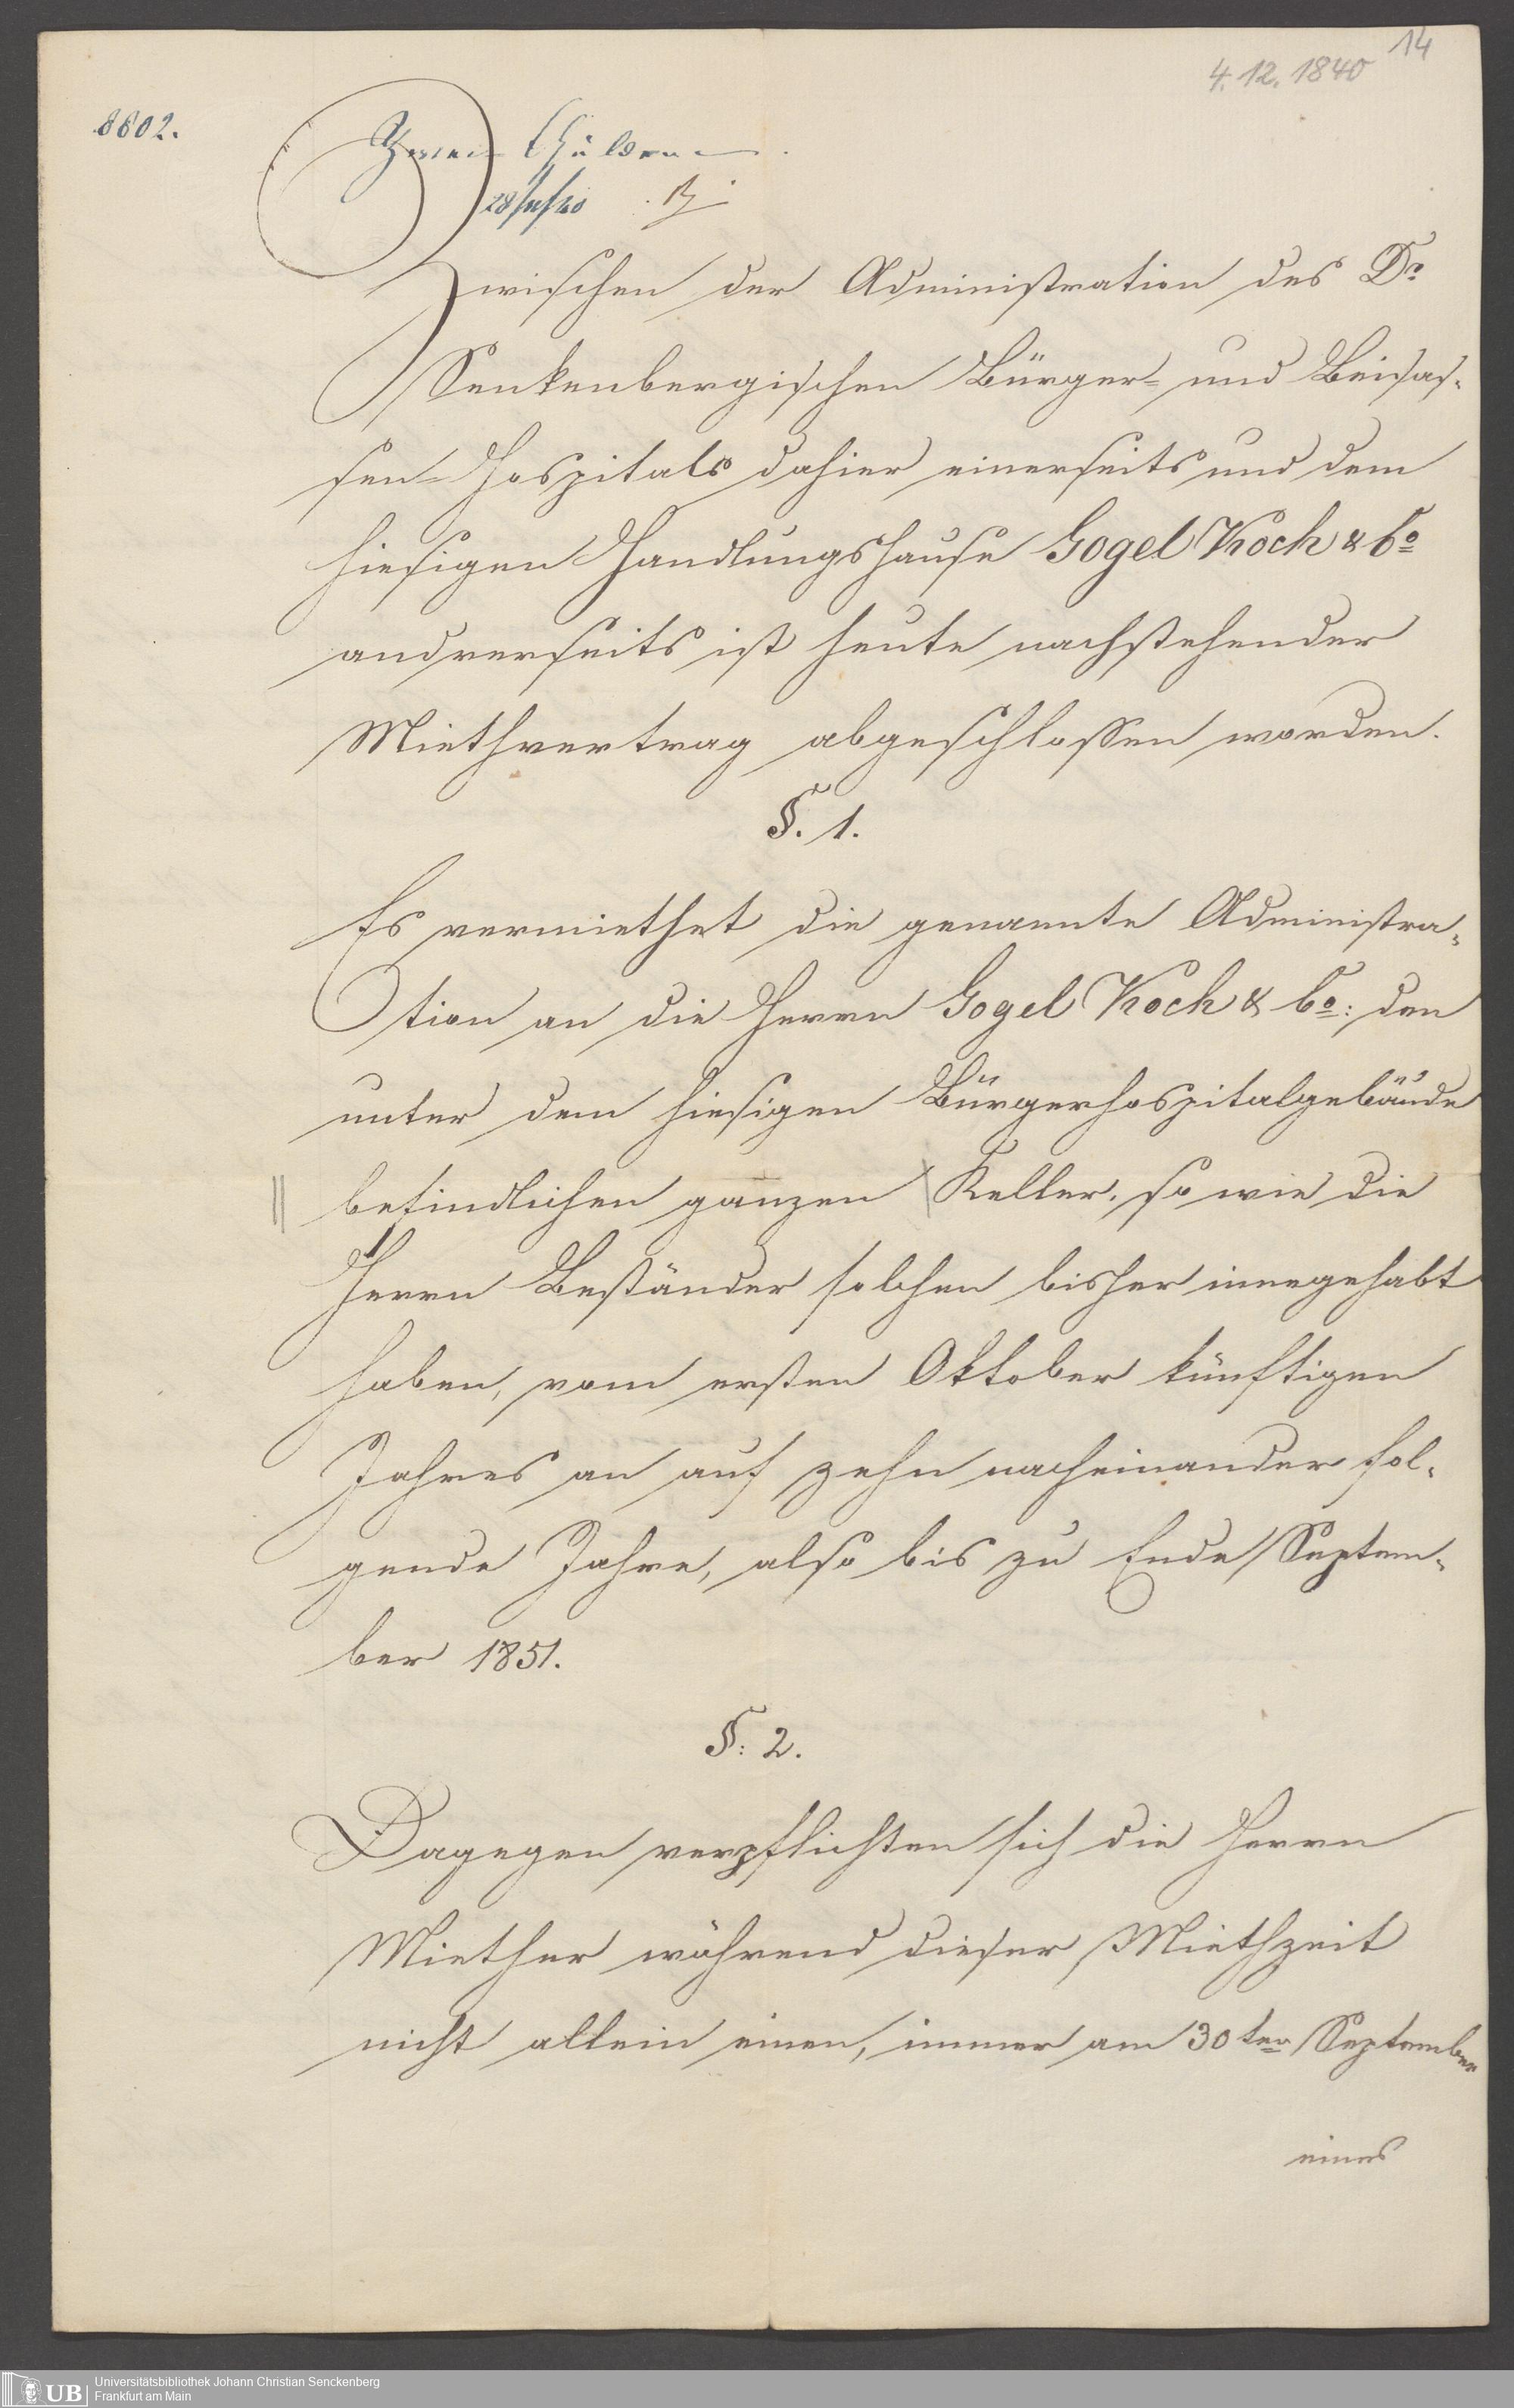 14
4.12.1840
8602.
Gulden
28/11/40
Zwischen der Administration des Dr.
Senkenbergischen Bürger- und Beisas-
sen-Hospitals dahier einerseits und dem
hiesigen Handlungshause Gogel Koch & Co
andrerseits ist heute nachstehender
Miethvertrag abgeschlossen worden.
§. 1.
Es vermiethet die genannte Administra-
tion an die Herrn Gogel Koch & Co: den
unter dem hiesigen Bürgerhospitalgebäude
befindlichen ganzen Keller, so wie die
Herrn Beständer solchen bisher innegehabt
haben, vom ersten Oktober künftigen
Jahres an auf zehn nacheinander fol-
gende Jahre, also bis zu Ende Septem-
ber 1851.
§: 2.
Dagegen verpflichten sich die Herrn
Miether während dieser Miethzeit
nicht allein einen, immer am 30ten September
eines
UB
Universitätsbibliothek Johann Christian Senckenberg
Frankfurt am Main